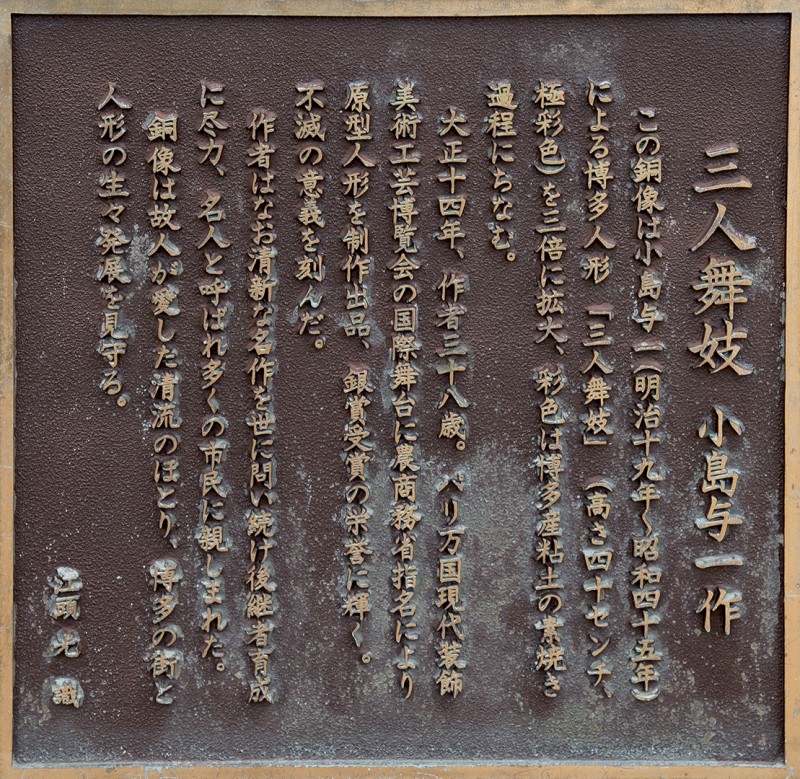 三人舞妓 小島与一作
この銅像は小島与一(明治十九年〜昭和四十五年)
による博多人形「三人舞妓」(高さ四十センチ、
極彩色)を三倍に拡大、彩色は博多産粘土の素焼き
過程にちなむ。
大正十四年、作者三十八歳。パリ万国現代装飾
美術工芸博覧会の国際舞台に農商務省指名により
原型人形を制作出品、銀賞受賞の栄誉に輝く。
不滅の意義を刻んだ。
作者はなお清新な名作を世に問い続け後継者育成
に尽力、名人と呼ばれ多くの市民に親しまれた。
銅像は故人が愛した清流のほとり、博多の街と
人形の生々発展を見守る。
江頭光識